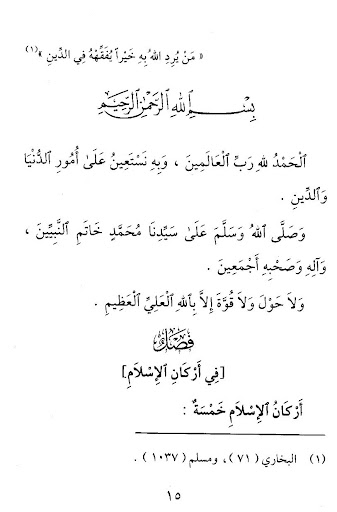 « مَنْ يُرِدِ اللهُ بِهِ خَيْراً يُفَقِّهْهُ فِي الدِّينِ »(١)
بِسْمِ اللهِ الرَّحْمٰنِ الرَّحِيْمِ
الْحَمْدُ للهِ رَبِّ الْعَالَمِينَ ، وَبِهِ نَسْتَعِينُ عَلَىٰ أُمُورِ الدُّنْيَا
وَالدِّينِ .
وَصَلَّى اللهُ وَسَلَّمَ عَلَىٰ سَيِّدِنَا مُحَمَّدٍ خَاتَمِ النَّبِيِّينَ ،
وَآلِهِ وَصَحْبِهِ أَجْمَعِينَ .
وَلاَ حَوْلَ وَلاَ قُوَّةَ إِلاَّ بِاللهِ الْعَلِيِّ الْعَظِيمِ .
فَصْلٌ
[فِي أَرْكَانِ الإِسْلاَمِ]
أَرْكَانُ الإِسْلاَمِ خَمْسَةٌ :
(١) البخاري (٧١) ، ومسلم (١٠٣٧) .
١٥